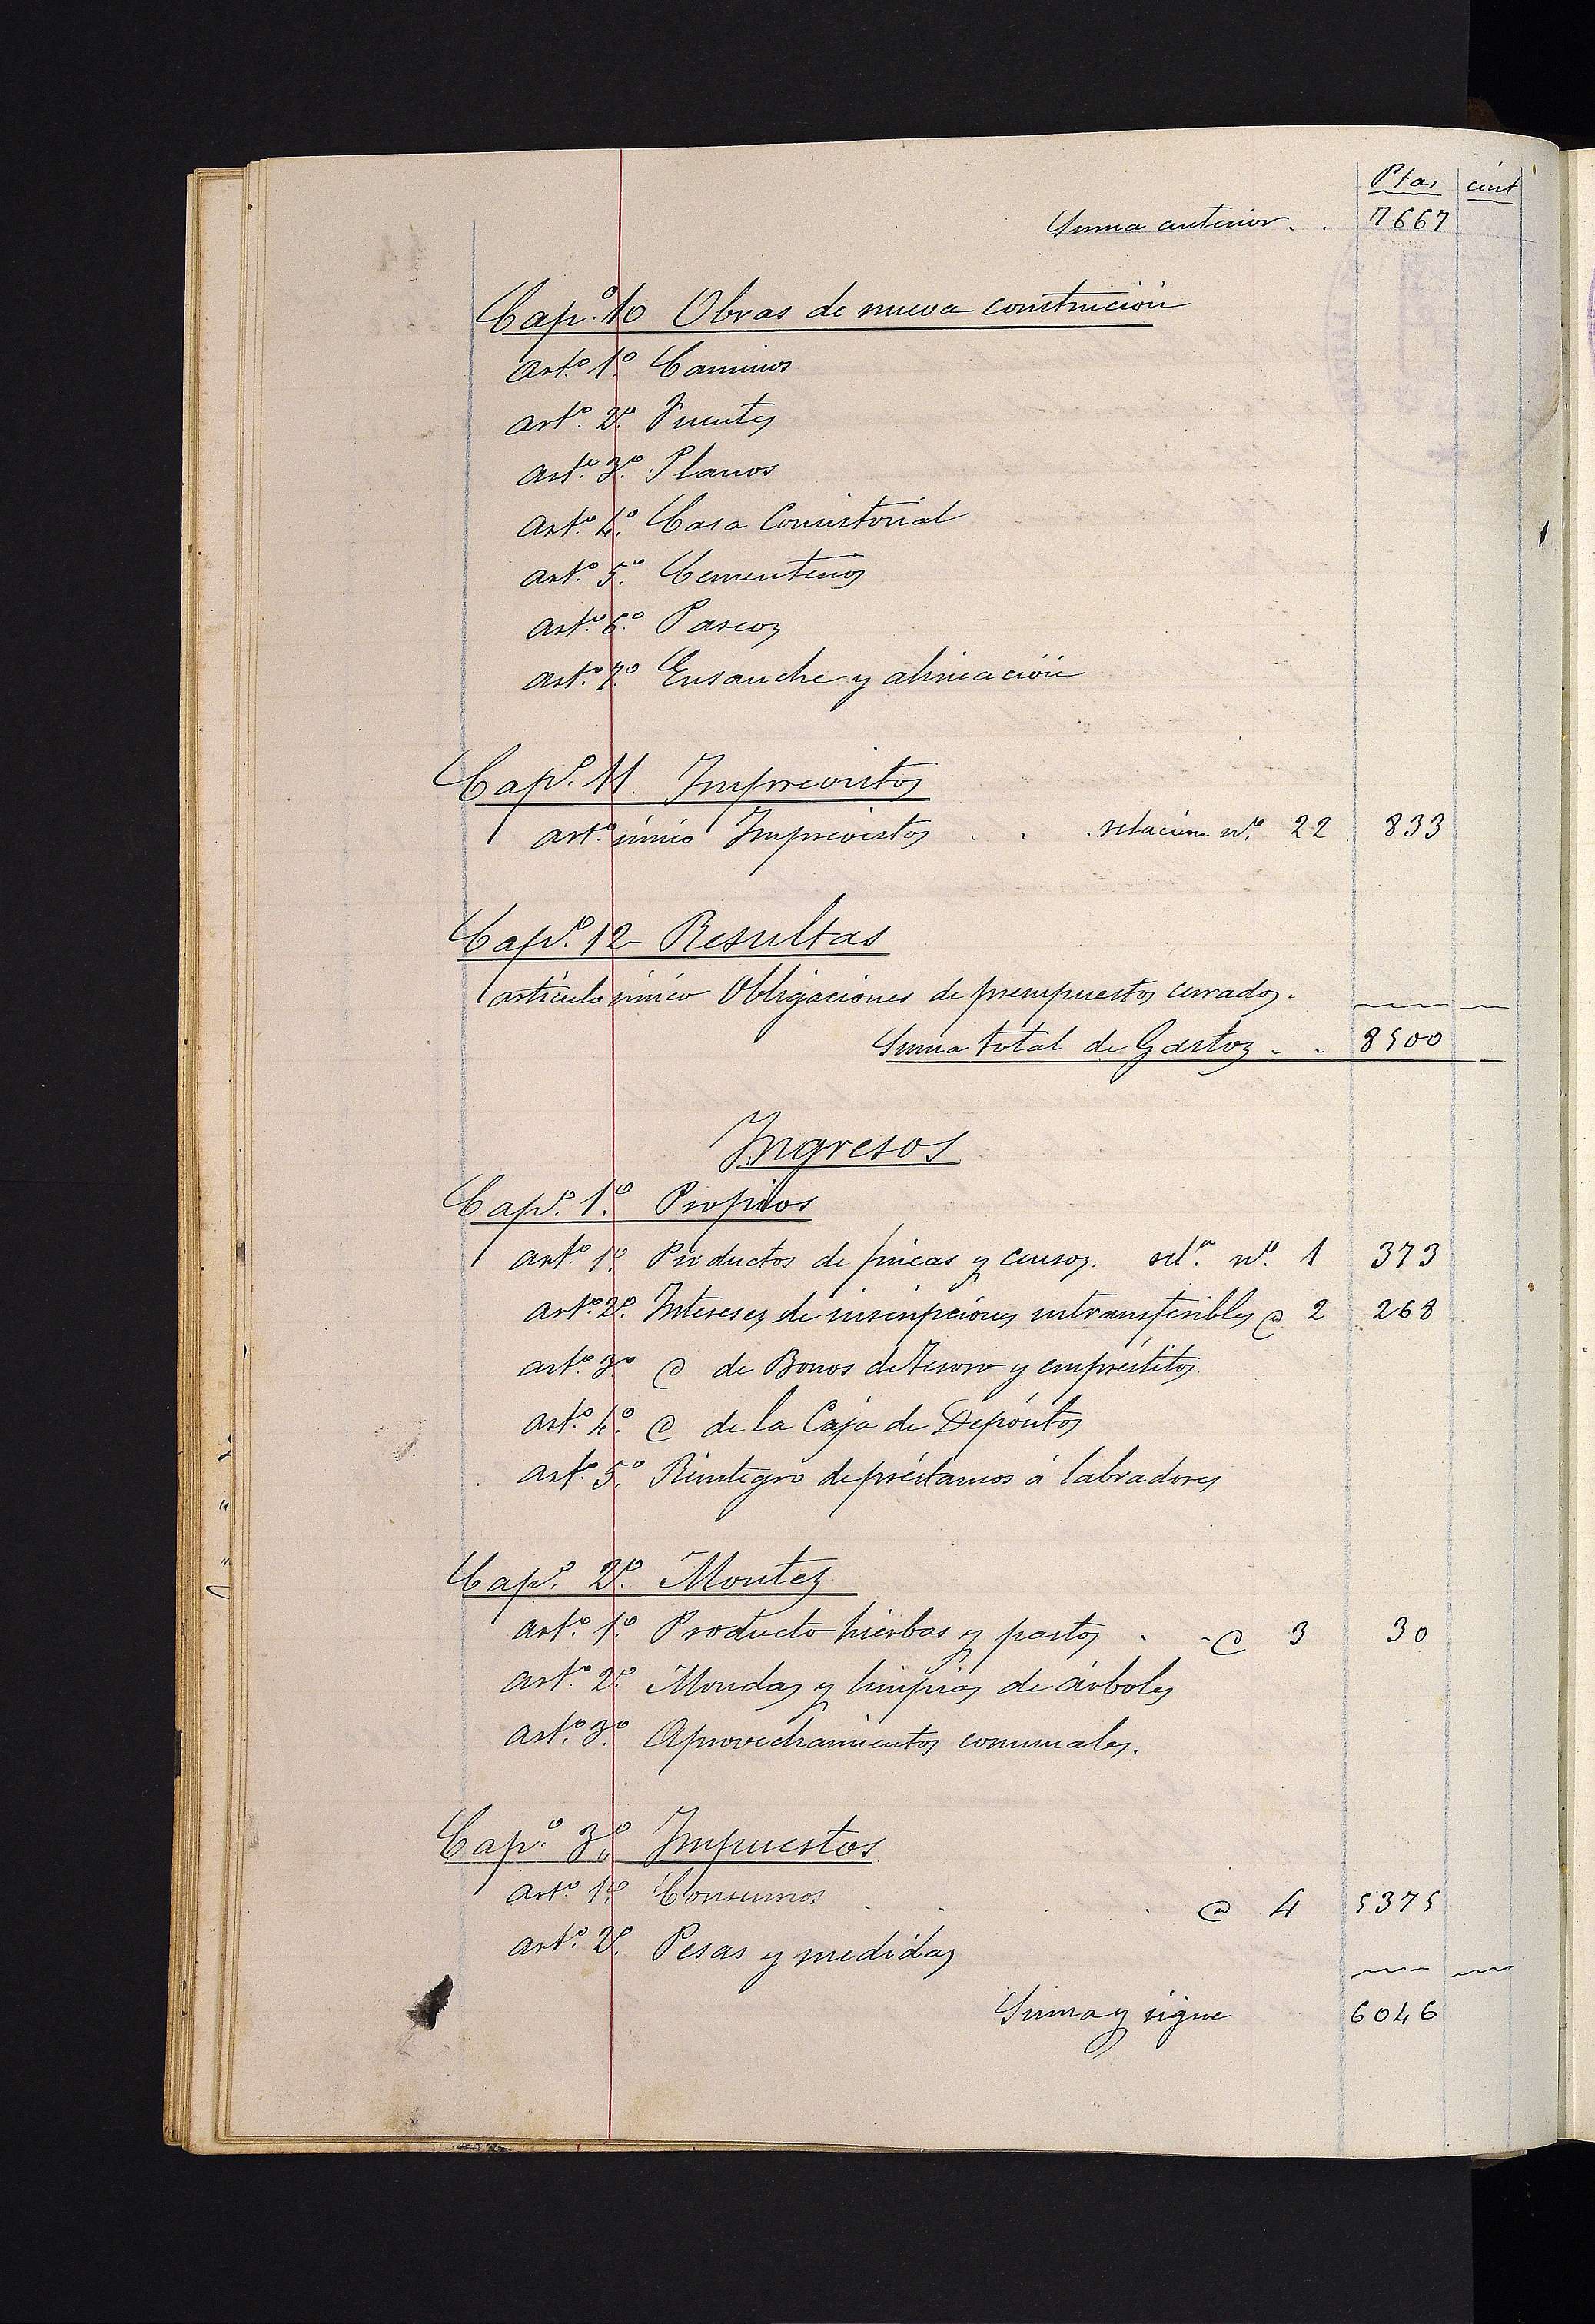 Ptas cént
Suma anterior . . 7667
Cap.º 10 Obras de nueva construcción
Art.º 1.º Caminos
Art.º 2.º Fuentes
Art.º 3.º Planos
Art.º 4.º Casa Consistorial
Art.º 5.º Cementerios
Art.º 6.º Paseos
Art.º 7.º Ensanche y alineación
Cap.º 11. Imprevistos
Art.º único Imprevistos . . . relación n.º 22 833
Cap.º 12 Resultas
Artículo único Obligaciones de presupuestos cerrados.
Suma total de Gastos . . 8500
Ingresos
Cap.º 1.º Propios
Art.º 1.º Productos de fincas y censos. rel.ⁿ n.º 1 373
Art.º 2.º Intereses de inscripciones intransferibles @ 2 268
Art.º 3.º @ de Bonos del Tesoro y empréstitos
Art.º 4.º @ de la Caja de Depósitos
Art.º 5.º Reintegro de préstamos á labradores
Cap.º 2.º Montes
Art.º 1.º Producto hierbas y pastos . . @ 3 30
Art.º 2.º Mondas y limpias de árboles
Art.º 3.º Aprovechamientos comunales.
Cap.º 3.º Impuestos
Art.º 1.º Consumos . . . . @ 4 5375
Art.º 2.º Pesas y medidas
Suma y sigue 6046